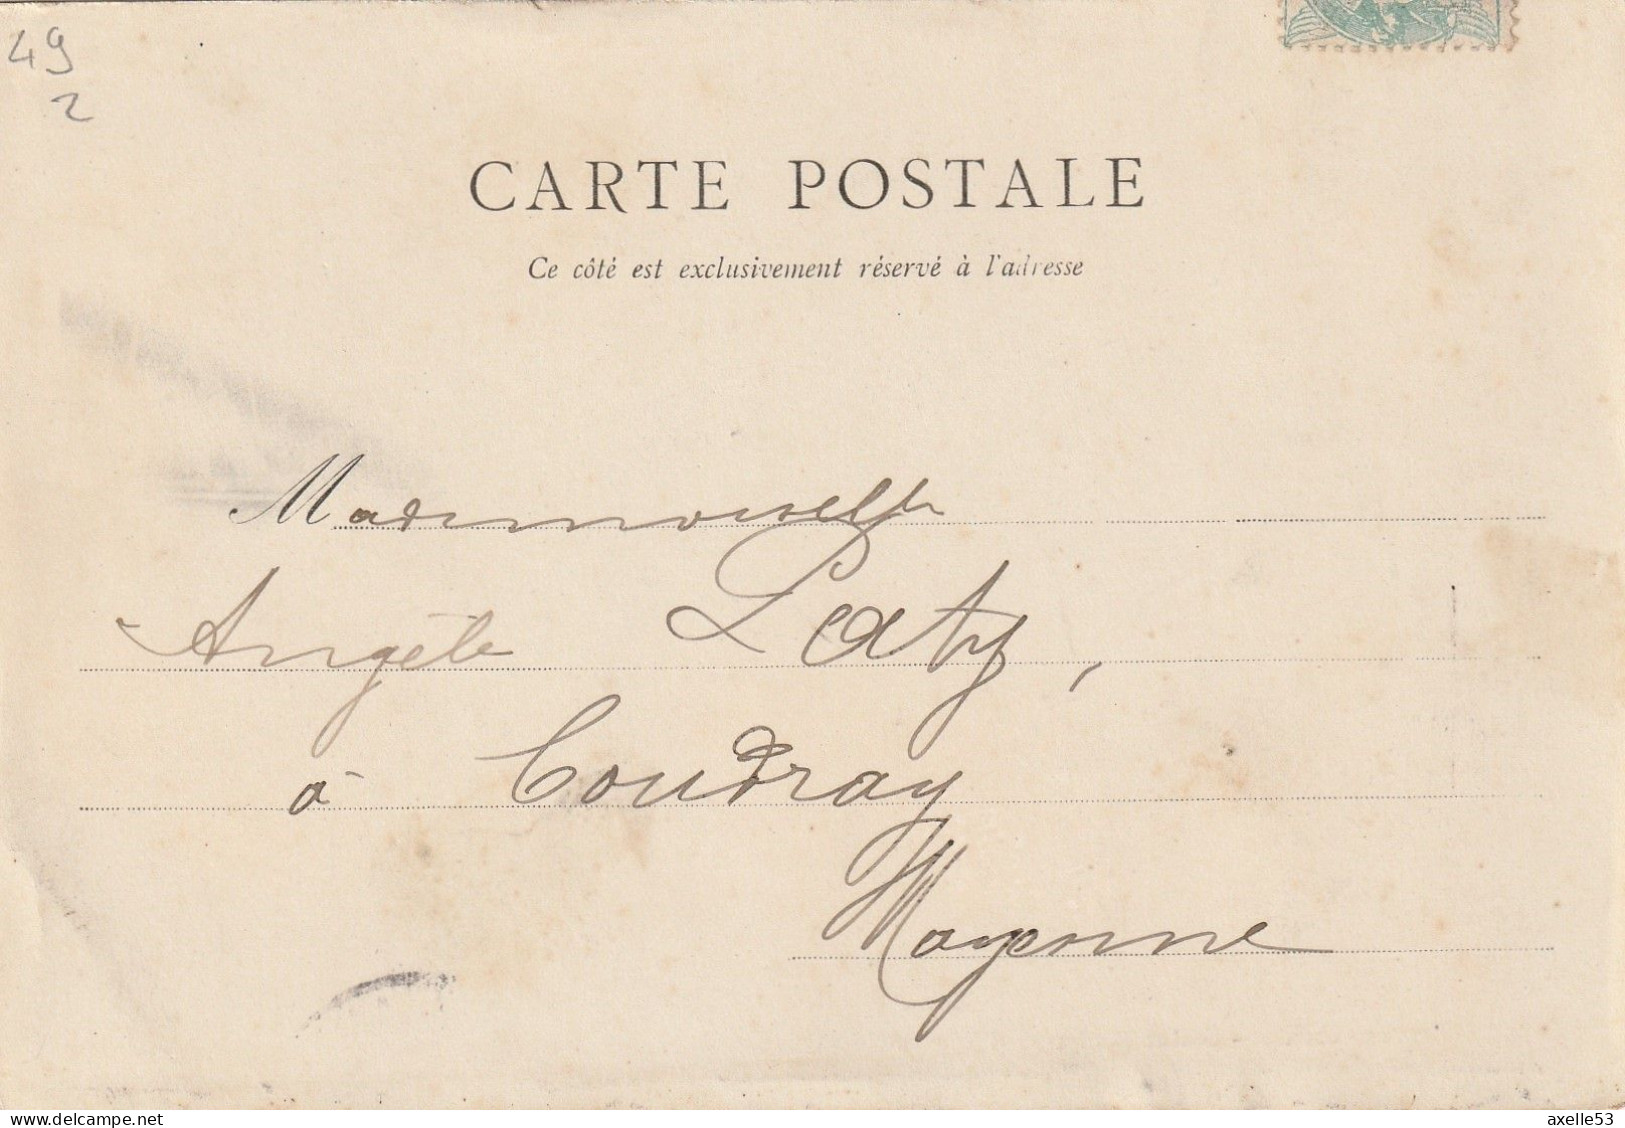 49
2
CARTE POSTALE
Ce côté est exclusivement réservé à l'adresse
Mademoiselle
Angèle Paty,
à Coudray
Mayenne
www.delcampe.net
axelle53